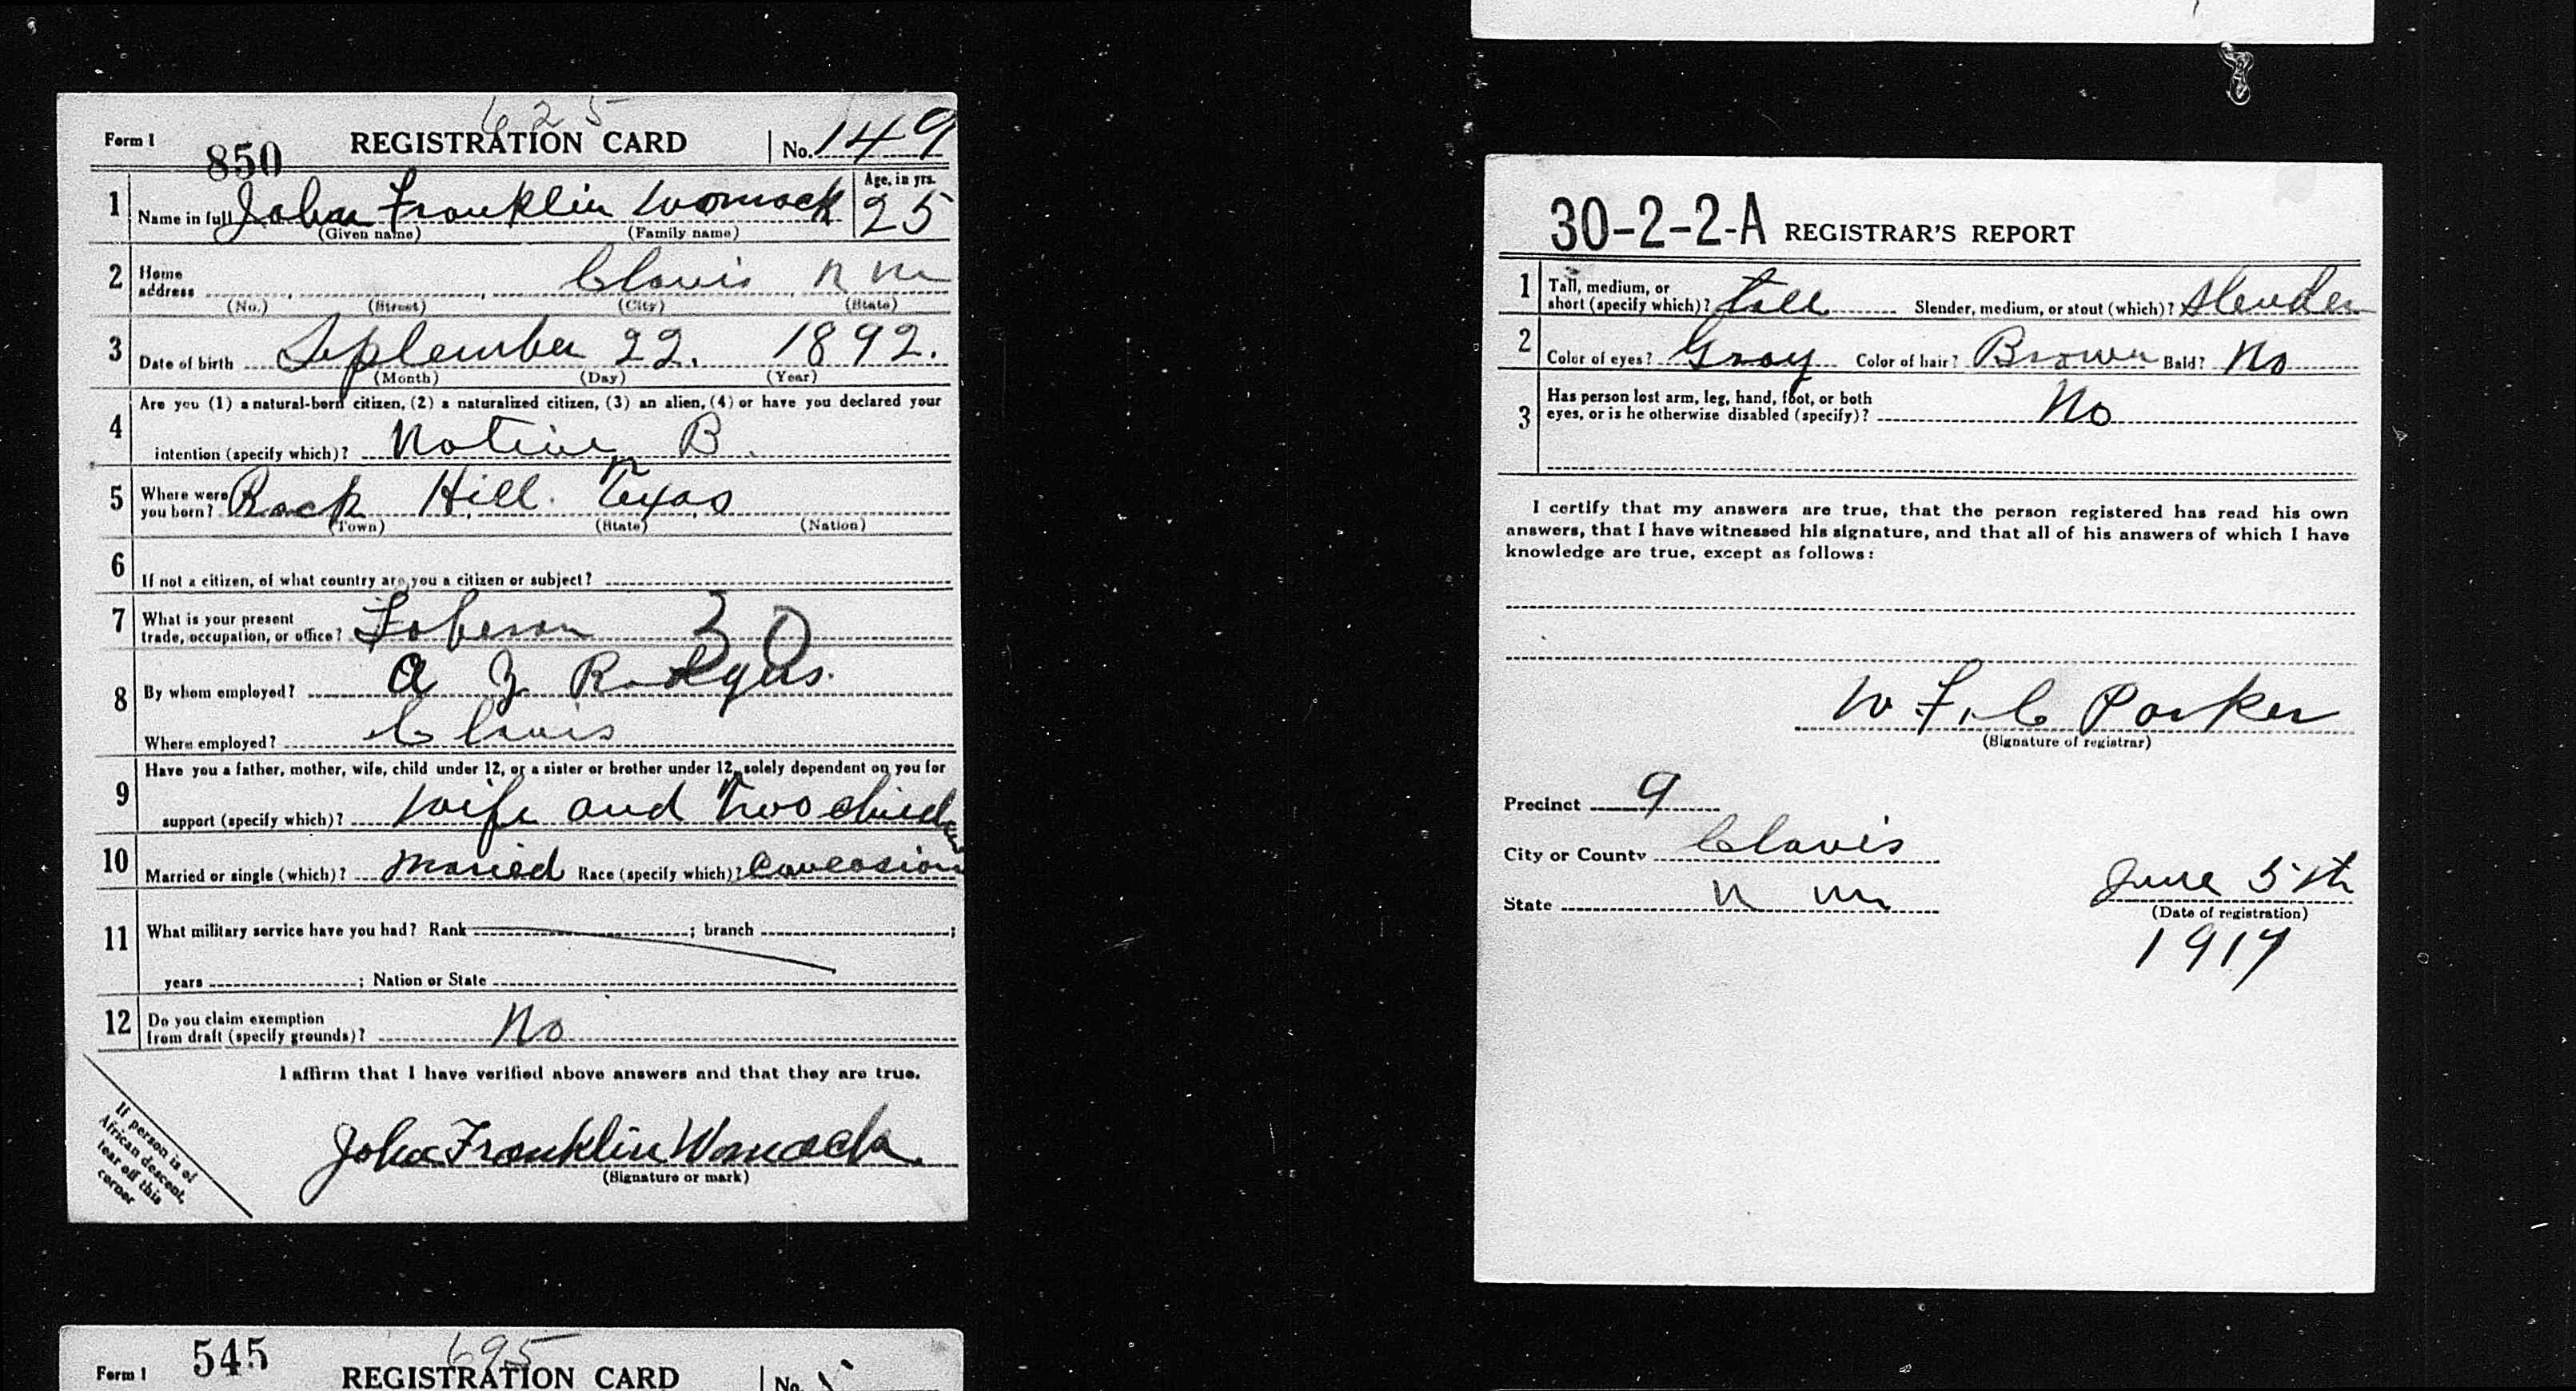 625
Form 1 850 REGISTRATION CARD No. 149
1 Name in full John Franklin Womack Age, in yrs. 25
(Given name) (Family name)
2 Home address Clovis N M
(No.) (Street) (City) (State)
3 Date of birth September 22. 1892.
(Month) (Day) (Year)
4 Are you (1) a natural-born citizen, (2) a naturalized citizen, (3) an alien, (4) or have you declared your
intention (specify which)? Native B.
5 Where were you born? Rock Hill. Texas
(Town) (State) (Nation)
6 If not a citizen, of what country are you a citizen or subject?
7 What is your present
trade, occupation, or office? 30
8 By whom employed? A Rodgers.
Where employed? Clovis
9 Have you a father, mother, wife, child under 12, or a sister or brother under 12, solely dependent on you for
support (specify which)? Wife and two children
10 Married or single (which)? Maried Race (specify which)? Caucasion
11 What military service have you had? Rank ; branch ;
years ; Nation or State
12 Do you claim exemption
from draft (specify grounds)? No
I affirm that I have verified above answers and that they are true.
John Franklin Womack
(Signature or mark)
If person is of
African descent,
tear off this
corner
695
Form 1 545 REGISTRATION CARD No.
30-2-2-A REGISTRAR'S REPORT
1 Tall, medium, or
short (specify which)? tall Slender, medium, or stout (which)? Slender
2 Color of eyes? Gray Color of hair? Brown Bald? No
3 Has person lost arm, leg, hand, foot, or both
eyes, or is he otherwise disabled (specify)? No
I certify that my answers are true, that the person registered has read his own
answers, that I have witnessed his signature, and that all of his answers of which I have
knowledge are true, except as follows:
W. F. C Parker
(Signature of registrar)
Precinct 9
City or County Clovis
State N M
June 5th
(Date of registration)
1917